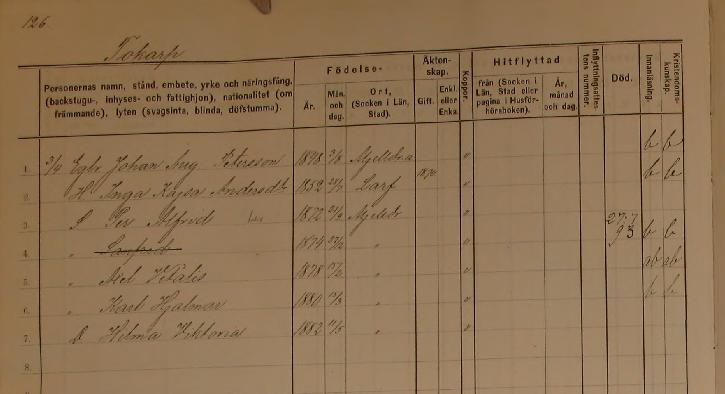 126.
Tokarp
Personernas namn, stånd, embete, yrke och näringsfång, (backstugu-, inhyses- och fattighjon), nationalitet (om främmande), lyten (svagsinta, blinda, döfstumma).
Födelse-
År.
Mån. och dag.
Ort, (Socken i Län, Stad).
Äkten-skap.
Gift.
Enkl. eller Enka.
Koppor.
Hitflyttad
från (Socken i Län, Stad eller pagina i Husför-hörsboken).
År, månad och dag.
Inflyttningsattes-tens nummer.
Död.
Innanläsning.
Kristendoms-kunskap.
1. 3/4 Egb. Johan Aug. Petersson 1848 Mjelldra " b b
2. H. Inga Kajsa Andersdtr 1852 Larf 1870 " b b
3. S. Per Alfred 1872 " 27/7 93 b b
4. " Sanfrid 1874 " "
5. " Axel Vitalis 1878 " " ab ab
6. " Karl Hjalmar 1880 " " b b
7. D. Hilma Viktoria 1882 " "
8.